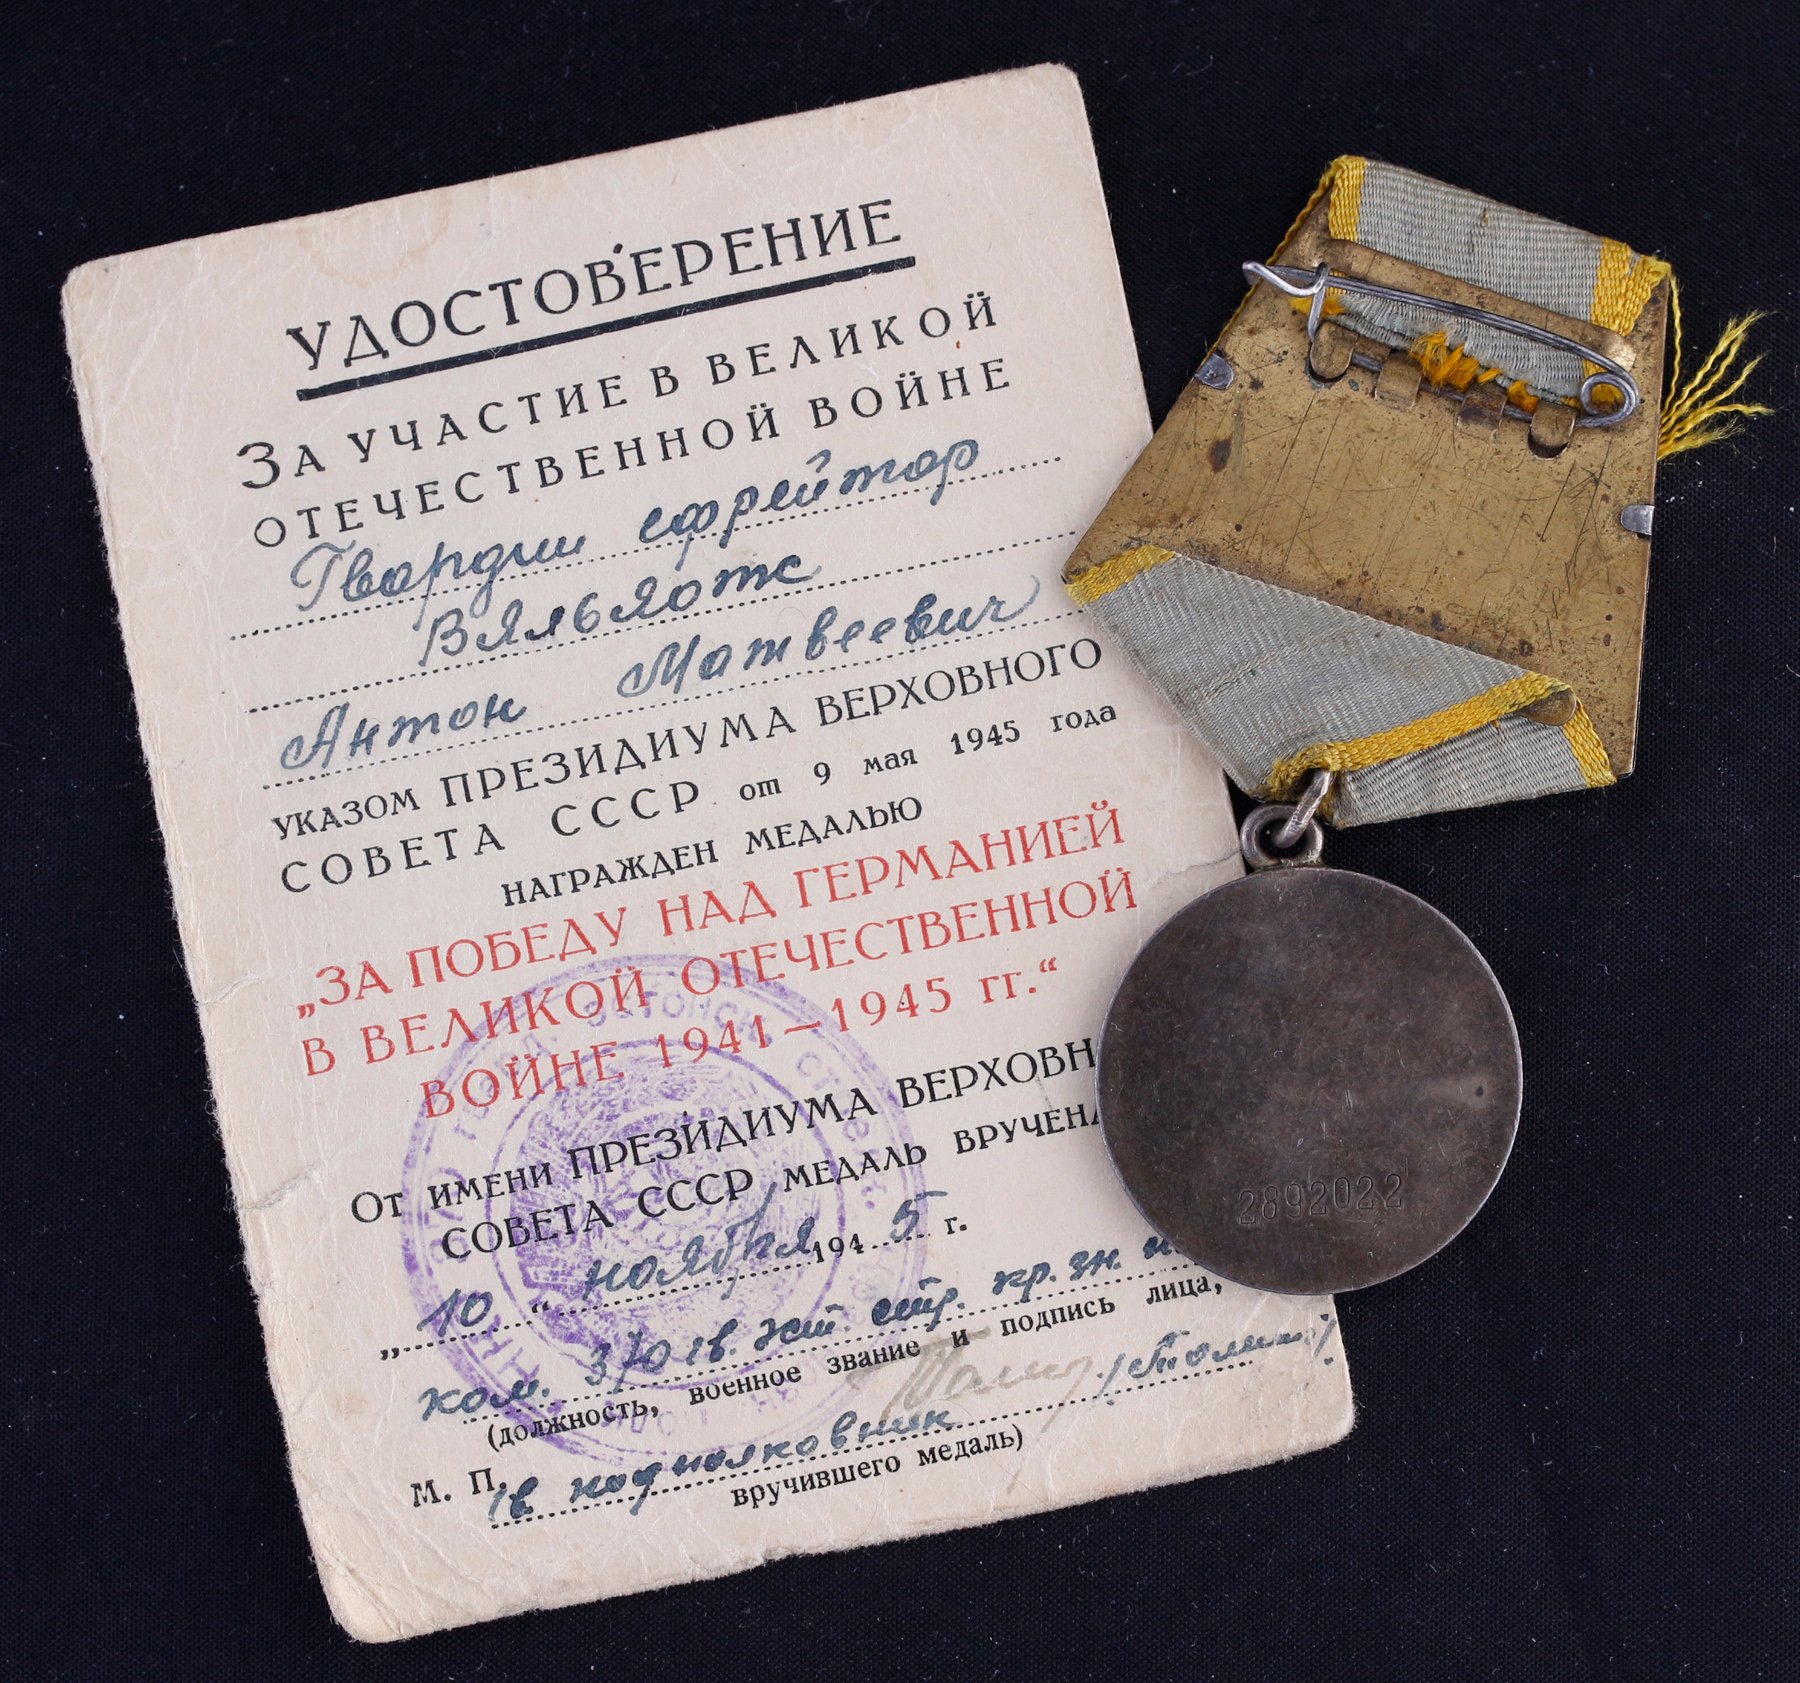 УДОСТОВЕРЕНИЕ
ЗА УЧАСТИЕ В ВЕЛИКОЙ
ОТЕЧЕСТВЕННОЙ ВОЙНЕ
Гвардии ефрейтор
Вяльяотс
Антон Матвеевич
УКАЗОМ ПРЕЗИДИУМА ВЕРХОВНОГО
СОВЕТА СССР от 9 мая 1945 года
НАГРАЖДЕН МЕДАЛЬЮ
„ЗА ПОБЕДУ НАД ГЕРМАНИЕЙ
В ВЕЛИКОЙ ОТЕЧЕСТВЕННОЙ
ВОЙНЕ 1941—1945 гг.“
ОТ ИМЕНИ ПРЕЗИДИУМА ВЕРХОВН
СОВЕТА СССР МЕДАЛЬ ВРУЧЕНА
„10“ ноября 1945 г.
ком. 370 гв. эст. стр. кр. зн.
(должность, военное звание и подпись лица,
М. П. гв. подполковник
вручившего медаль)
2892022